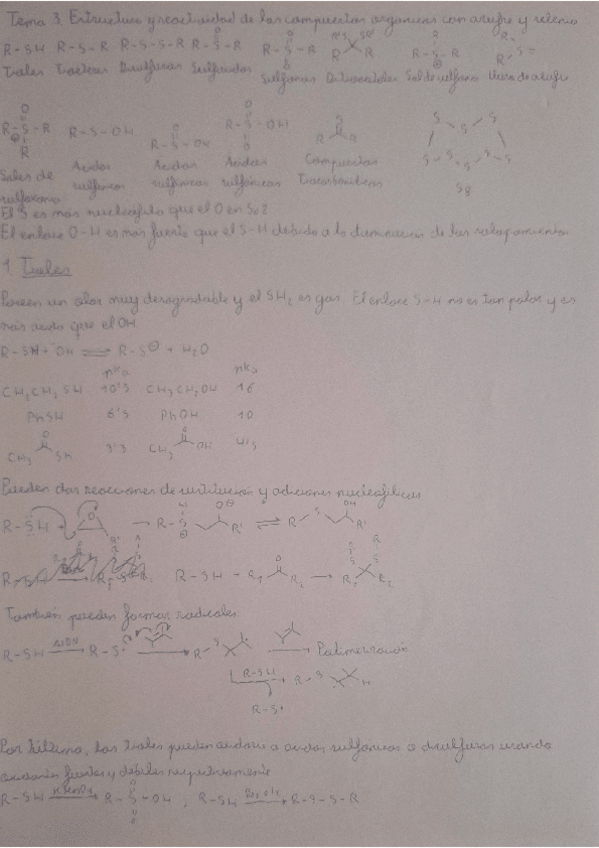 Tema 3. Estructura y reactividad de los compuestos orgánicos con azufre y selenio
R-SH R-S-R R-S-S-R R-S-R
Tioles Tioéteres Disulfuros Sulfóxidos Sulfonas Ditioacetales Sal de sulfonio Iluro de azufre
R-S-R R-S-OH S-OH R-S-OH
Sales de sulfoxonio Ácidos sulfénicos Ácidos sulfínicos Ácidos sulfónicos Compuestos tiocarbonílicos S8
El S es más nucleófilo que el O en SN2
El enlace O-H es más fuerte que el S-H debido a la disminución de los solapamientos
1. Tioles
Poseen un olor muy desagradable y el SH2 es gas. El enlace S-H no es tan polar y es
más ácido que el OH
R-SH + ⁻OH ⇌ R-S⊖ + H2O
pKa pKa
CH3CH2SH 10'5 CH3CH2OH 16
PhSH 6'5 PhOH 10
CH3 O SH 3'3 CH3 O OH 4'5
Pueden dar reacciones de sustitución y adiciones nucleofílicas
R-SH + O R' → R-S⊕ O⊖ R' ⇌ R S OH R'
R-SH R1 O R2 → R1 R2
También pueden formar radicales
R-SH AIBN → R-S• → R S → Polimerización
R-SH → R S H
R-S•
Por último, los tioles pueden oxidarse a ácidos sulfónicos o disulfuros usando
oxidantes fuertes y débiles respectivamente
R-SH KMnO4 → R-S-OH ; R-SH → R-S-S-R